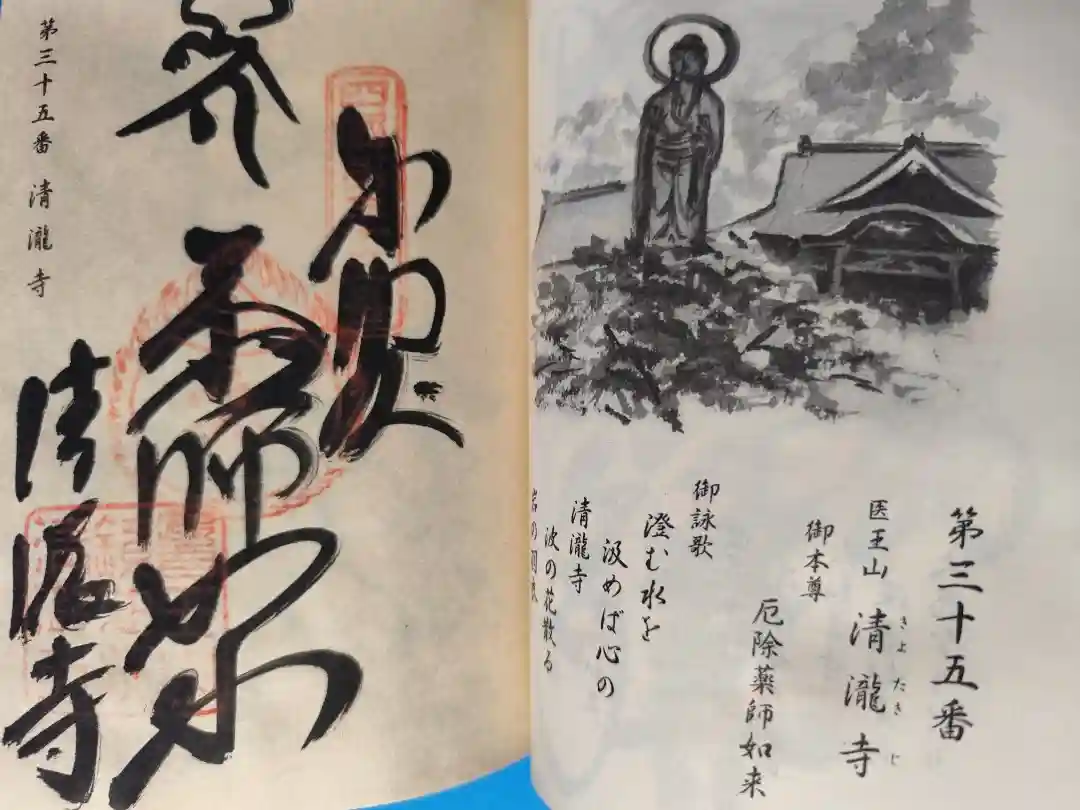 第三十五番
医王山 清瀧寺
きよたきじ
御本尊
厄除薬師如来
御詠歌
澄む水を
汲めば心の
清瀧寺
波の花散る
岩の羽衣
薬師如来
清滝寺
第三十五番 清瀧寺